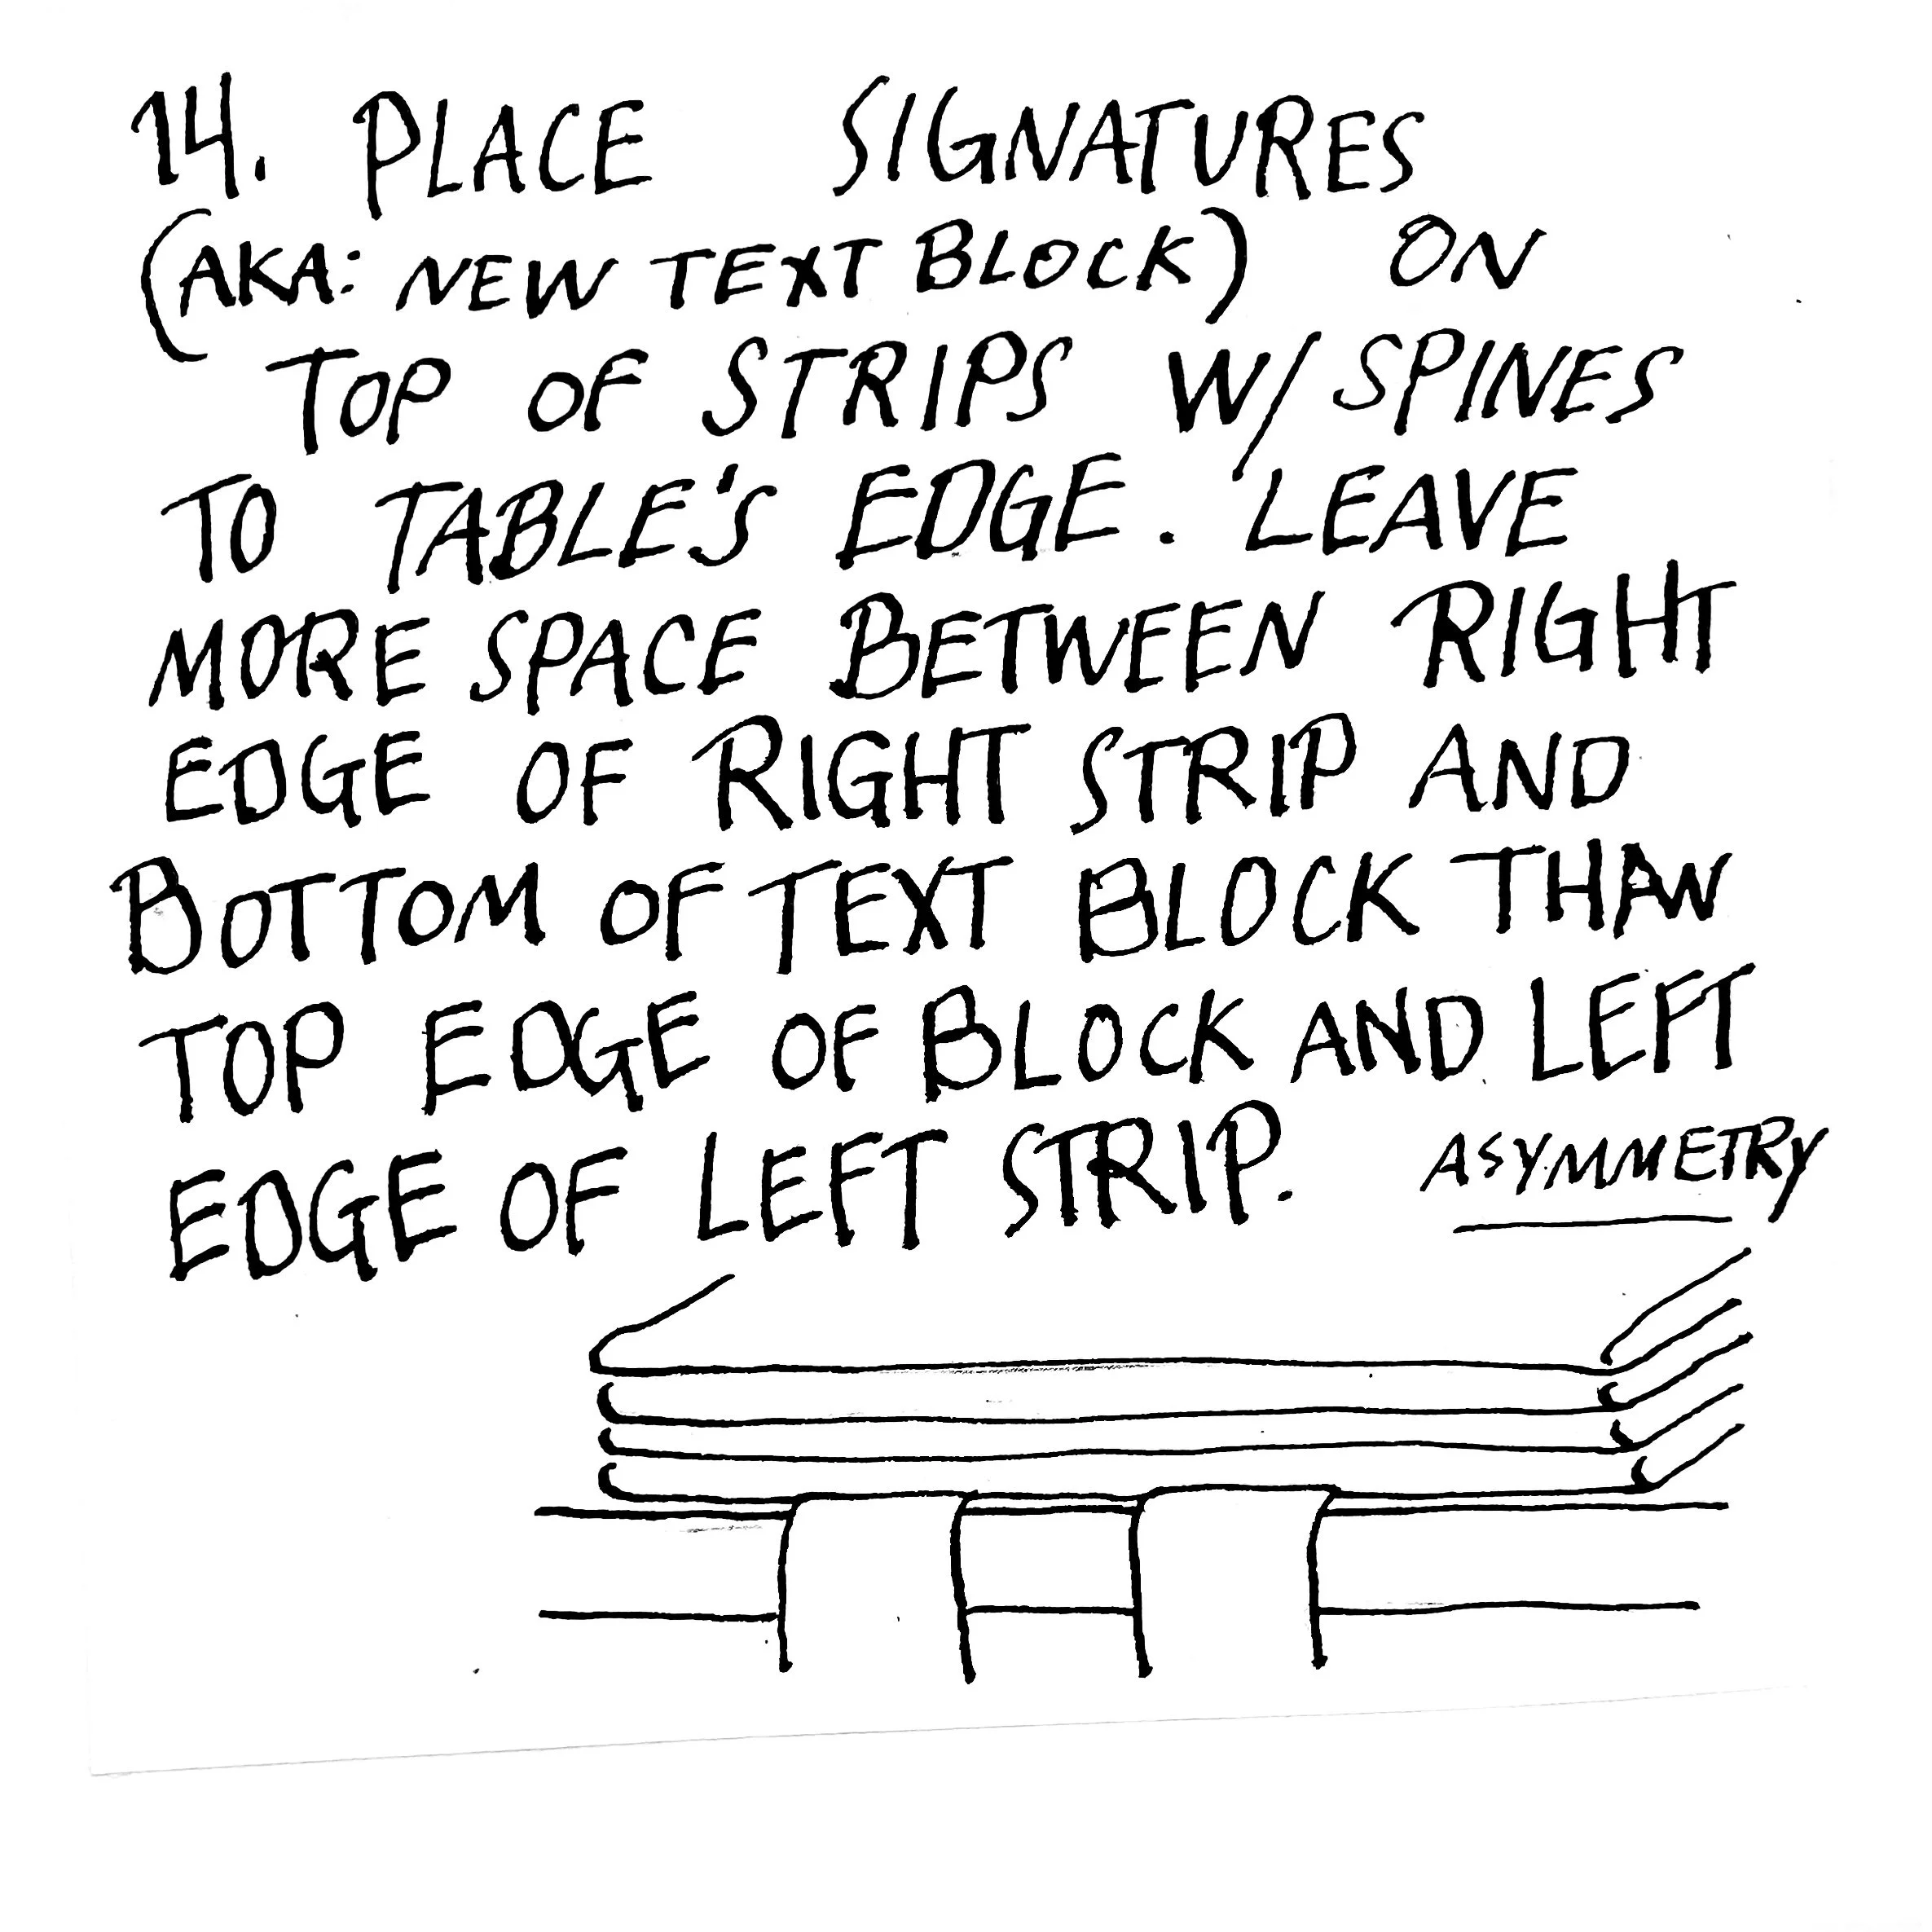 14. PLACE SIGNATURES
(AKA: NEW TEXT BLOCK) ON
TOP OF STRIPS W/ SPINES
TO TABLE'S EDGE. LEAVE
MORE SPACE BETWEEN RIGHT
EDGE OF RIGHT STRIP AND
BOTTOM OF TEXT BLOCK THAN
TOP EDGE OF BLOCK AND LEFT
EDGE OF LEFT STRIP. ASYMMETRY